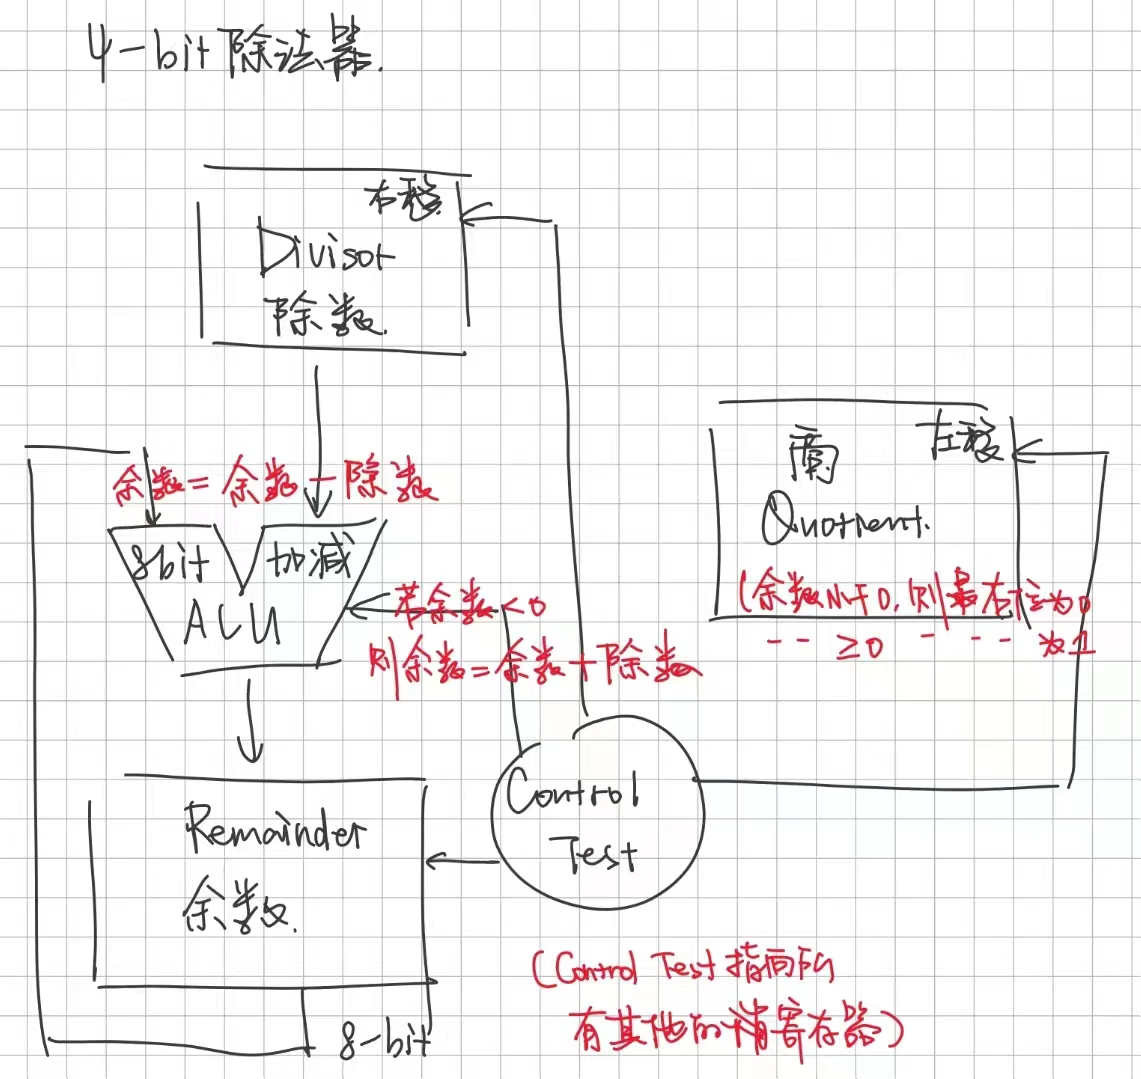 4-bit 除法器.
右移
Divisor
除数.
余数=余数-除数
8bit
ALU
加减
若余数<0
则余数=余数+除数
左移
商
Quotient.
(余数小于0,则最右位为0
-- ≥0 - - - 为1
Control
Test
Remainder
余数.
8-bit
(Control Test 指向所
有其他的寄存器)